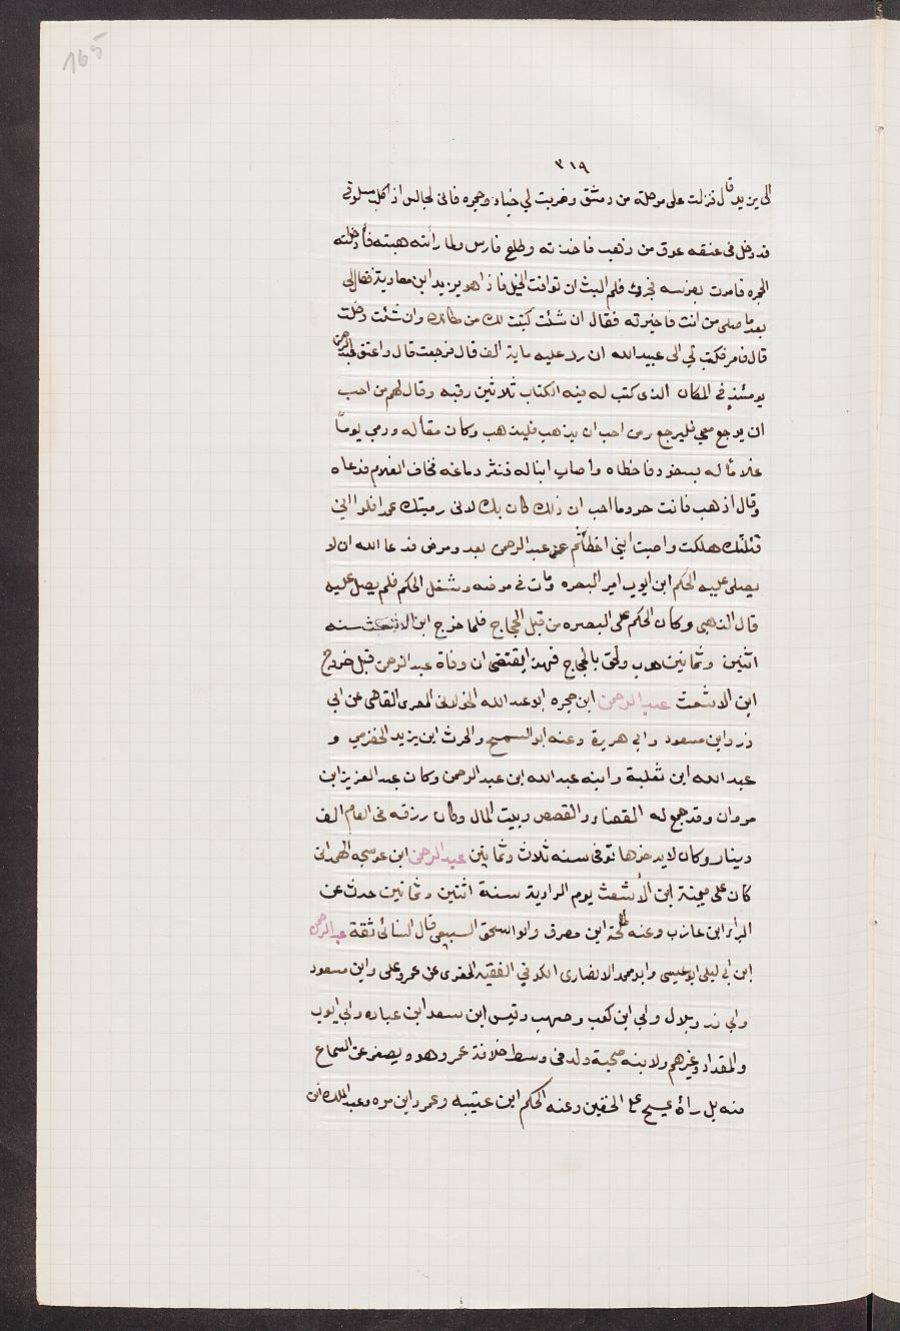 165
٣١٩
الى يزيد قال فنزلت على مرحلة من دمشق وضربت لي خباء وحجره فانى لجالس اذ كلب سلوقى
قد دخل فى عنقه طوق من ذهب فاخذته وطلع فارس ولما رأيته هبته فأدخلته
الحجره فامرت بفرسه فلم البث ان توافت الخيل فاذا هو يزيد ابن معاوية فقال لى
بعد ما صلى من انت فاخبرته فقال ان شئت كتبت لك من مكانك وان شئت دخلت
قال فامر فكتب لي الى عبيد الله ان رد عليه ماية الف قال فرجعت قال واعتق عبد الرحمن
يومئذ في المكان الذى كتب له فيه الكتاب ثلاثين رقبه وقال لهم من احب
ان يرجع معي فليرجع ومن احب ان يذهب فليذهب وكان متأله ورمي يوماً
غلاماً له بسفود فاخطاه وأصاب ابنا له فنثر دماغه فخاف الغلام فدعاه
وقال اذهب فانت حر وما احب ان ذلك كان بك لانى رميتك عمدا فلو انى
قتلتك هلكت واصبت ابني اخطأ ثم عمى عبد الرحمن بعد ومرض فدعا الله ان لا
يصلى عليه الحكم ابن ايوب امير البصره ومات فى مرضه وشغل الحكم فلم يصل عليه
قال الذهبى وكان الحكم على البصره من قبل الحجاج فلما خرج ابن الاشعث سنه
اثنين وثمانين هرب ولحق بالحجاج فهذا يقتضى ان وفاة عبد الرحمن قبل خروج
ابن الاشعث عبد الرحمن ابن حجره ابو عبد الله الخولانى المصرى القاضى عن ابى
ذر وابن مسعود وابي هريرة وعنه ابو السميح والحرث ابن يزيد الحضرمي و
عبد الله ابن ثعلبة وابنه عبد الله ابن عبد الرحمن وكان عبد العزيز ابن
مروان وقد جمع له القضا والقصص وبيت المال وكان رزقه فى العام الف
دينار وكان لا يدخرها توفى سنه ثلاث وثمانين عبد الرحمن ابن عوسجه الهمدانى
كان على ميمنة ابن الأشعث يوم الزاوية سنة اثنتين وثمانين حدث عن
البراء ابن عازب وعنه طلحة ابن مصرف وابو اسحق السبيعى قال النسائى ثقة عبد الرحمن
ابن ابى ليلى ابو عيسى وابو محمد الانصارى الكوفي الفقيه المقرى عن عمر وعلى وابن مسعود
وابي ذر وبلال وابي ابن كعب وصهيب وقيس ابن سعد ابن عباده وابى ايوب
والمقداد وغيرهم ولابنه صحبة ولد فى وسط خلافة عمر وهو يصغر عن السماع
منه بل رأه يمسح على الخفين وعنه الحكم ابن عتيبه وعمرو ابن مره وعبد الملك ابن